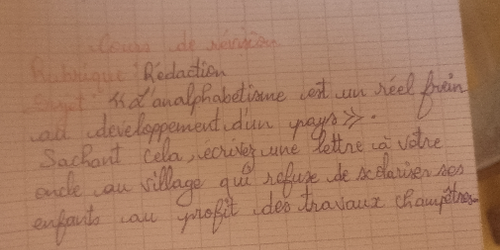 Cours de révision
Rubrique : Rédaction
Sujet : « L'analphabétisme est un réel frein
au développement d'un pays ».
Sachant cela, écrivez une lettre à votre
oncle au village qui refuse de scolariser ses
enfants au profit des travaux champêtres.